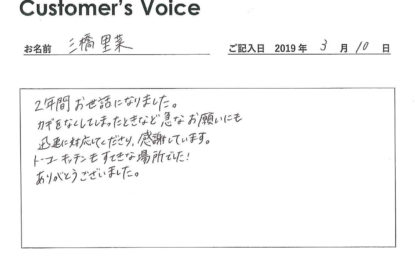 Customer's Voice
お名前 三橋里菜 ご記入日 2019年 3 月 10 日
2年間お世話になりました。
カギをなくしてしまったときなど急なお願いにも
迅速に対応してくださり、感謝しています。
トーコーキッチンもすてきな場所でした!
ありがとうございました。